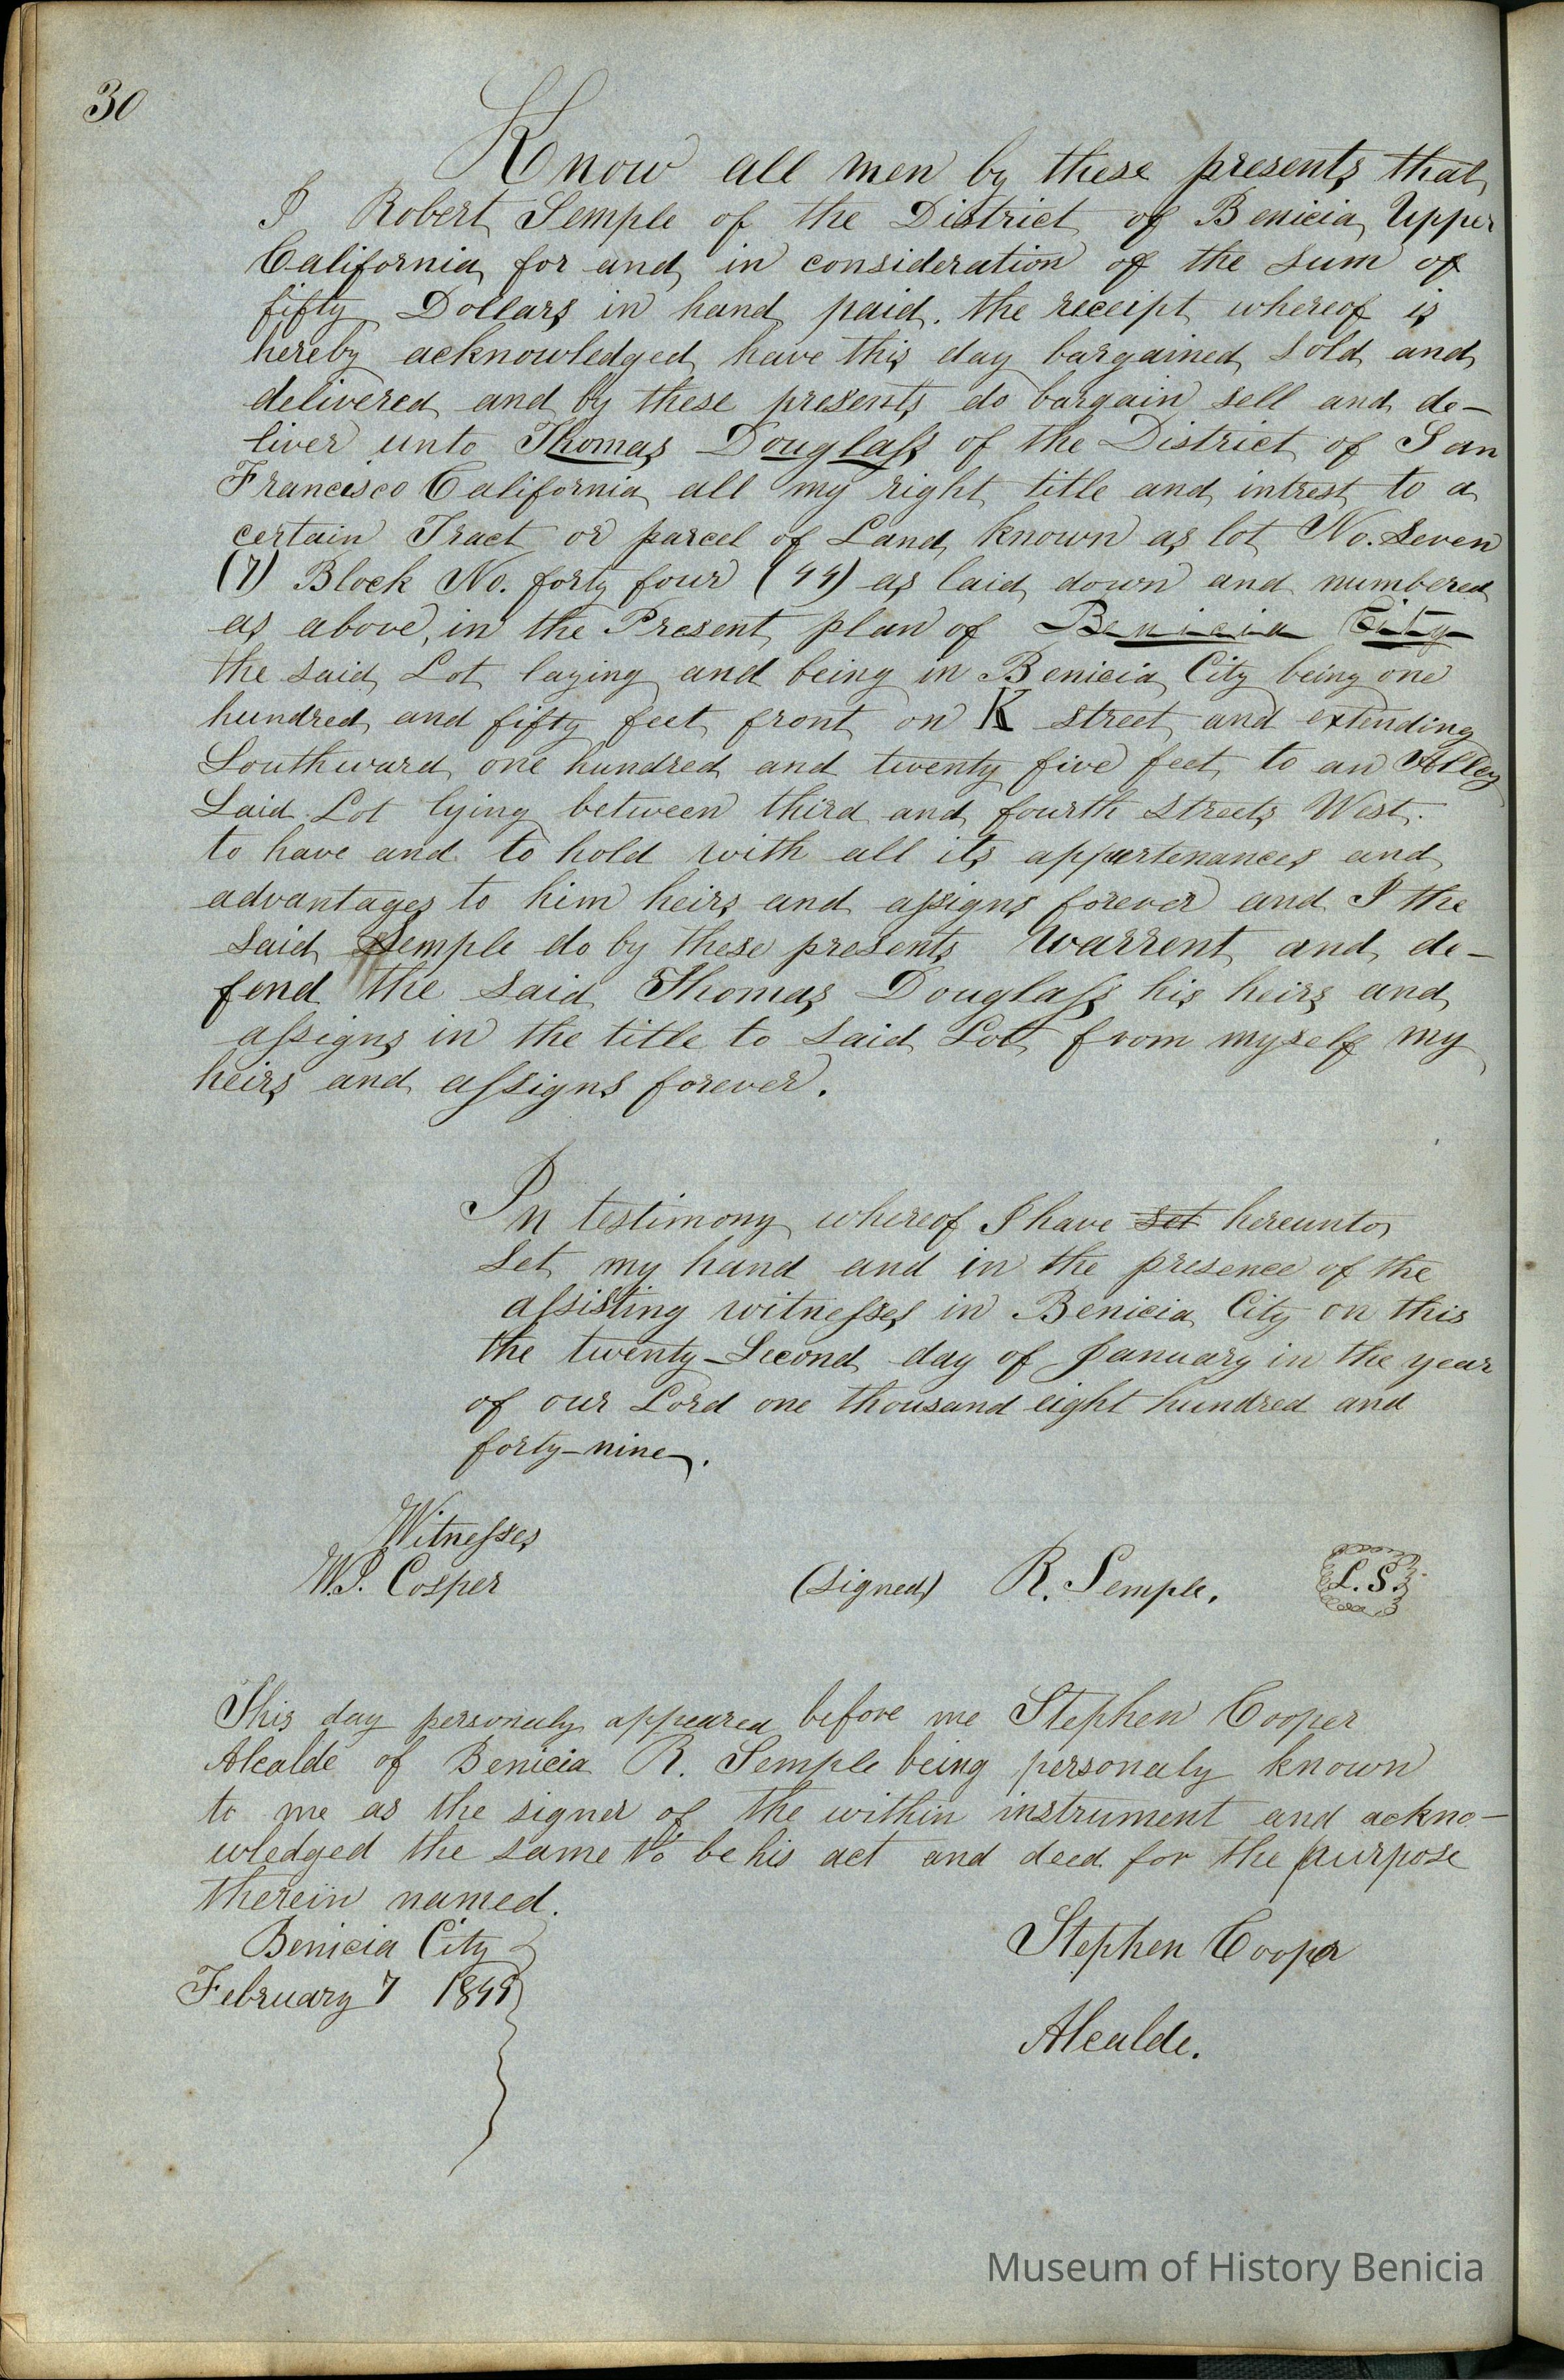 30
Know all men by these presents that
I Robert Semple of the District of Benicia Upper
California for and in consideration of the sum of
fifty Dollars in hand paid. the receipt whereof is
hereby acknowledged have this day bargained sold and
delivered and by these presents do bargain sell and de-
liver unto Thomas Douglass of the District of San
Francisco California all my right title and intrest to a
certain Tract or parcel of Land known as lot No. Seven
(7) Block No. forty four (44) as laid down and numbered
as above, in the Present plan of Benicia City
the said Lot laying and being in Benicia City being one
hundred and fifty feet front on K street and extending
Southward one hundred and twenty five feet to an Alley
Said Lot lying between third and fourth streets West.
to have and to hold with all its appurtenances and
advantages to him heirs and assigns forever and I the
said Semple do by these presents warrent and de-
fend the said Thomas Douglass his heirs and
assigns in the title to said Lot from myself my
heirs and assigns forever.
In testimony whereof I have set hereunto
set my hand and in the presence of the
assisting witnesses in Benicia City on this
the twenty-Second day of January in the year
of our Lord one thousand eight hundred and
forty-nine.
Witnesses
W.P. Cosper
(signed) R. Semple. L.S.
This day personaly appeared before me Stephen Cooper
Alcalde of Benicia R. Semple being personaly known
to me as the signer of the within instrument and ackno-
wledged the same to be his act and deed for the purpose
therein named.
Benicia City
February 7 1849
Stephen Cooper
Alcalde.
Museum of History Benicia